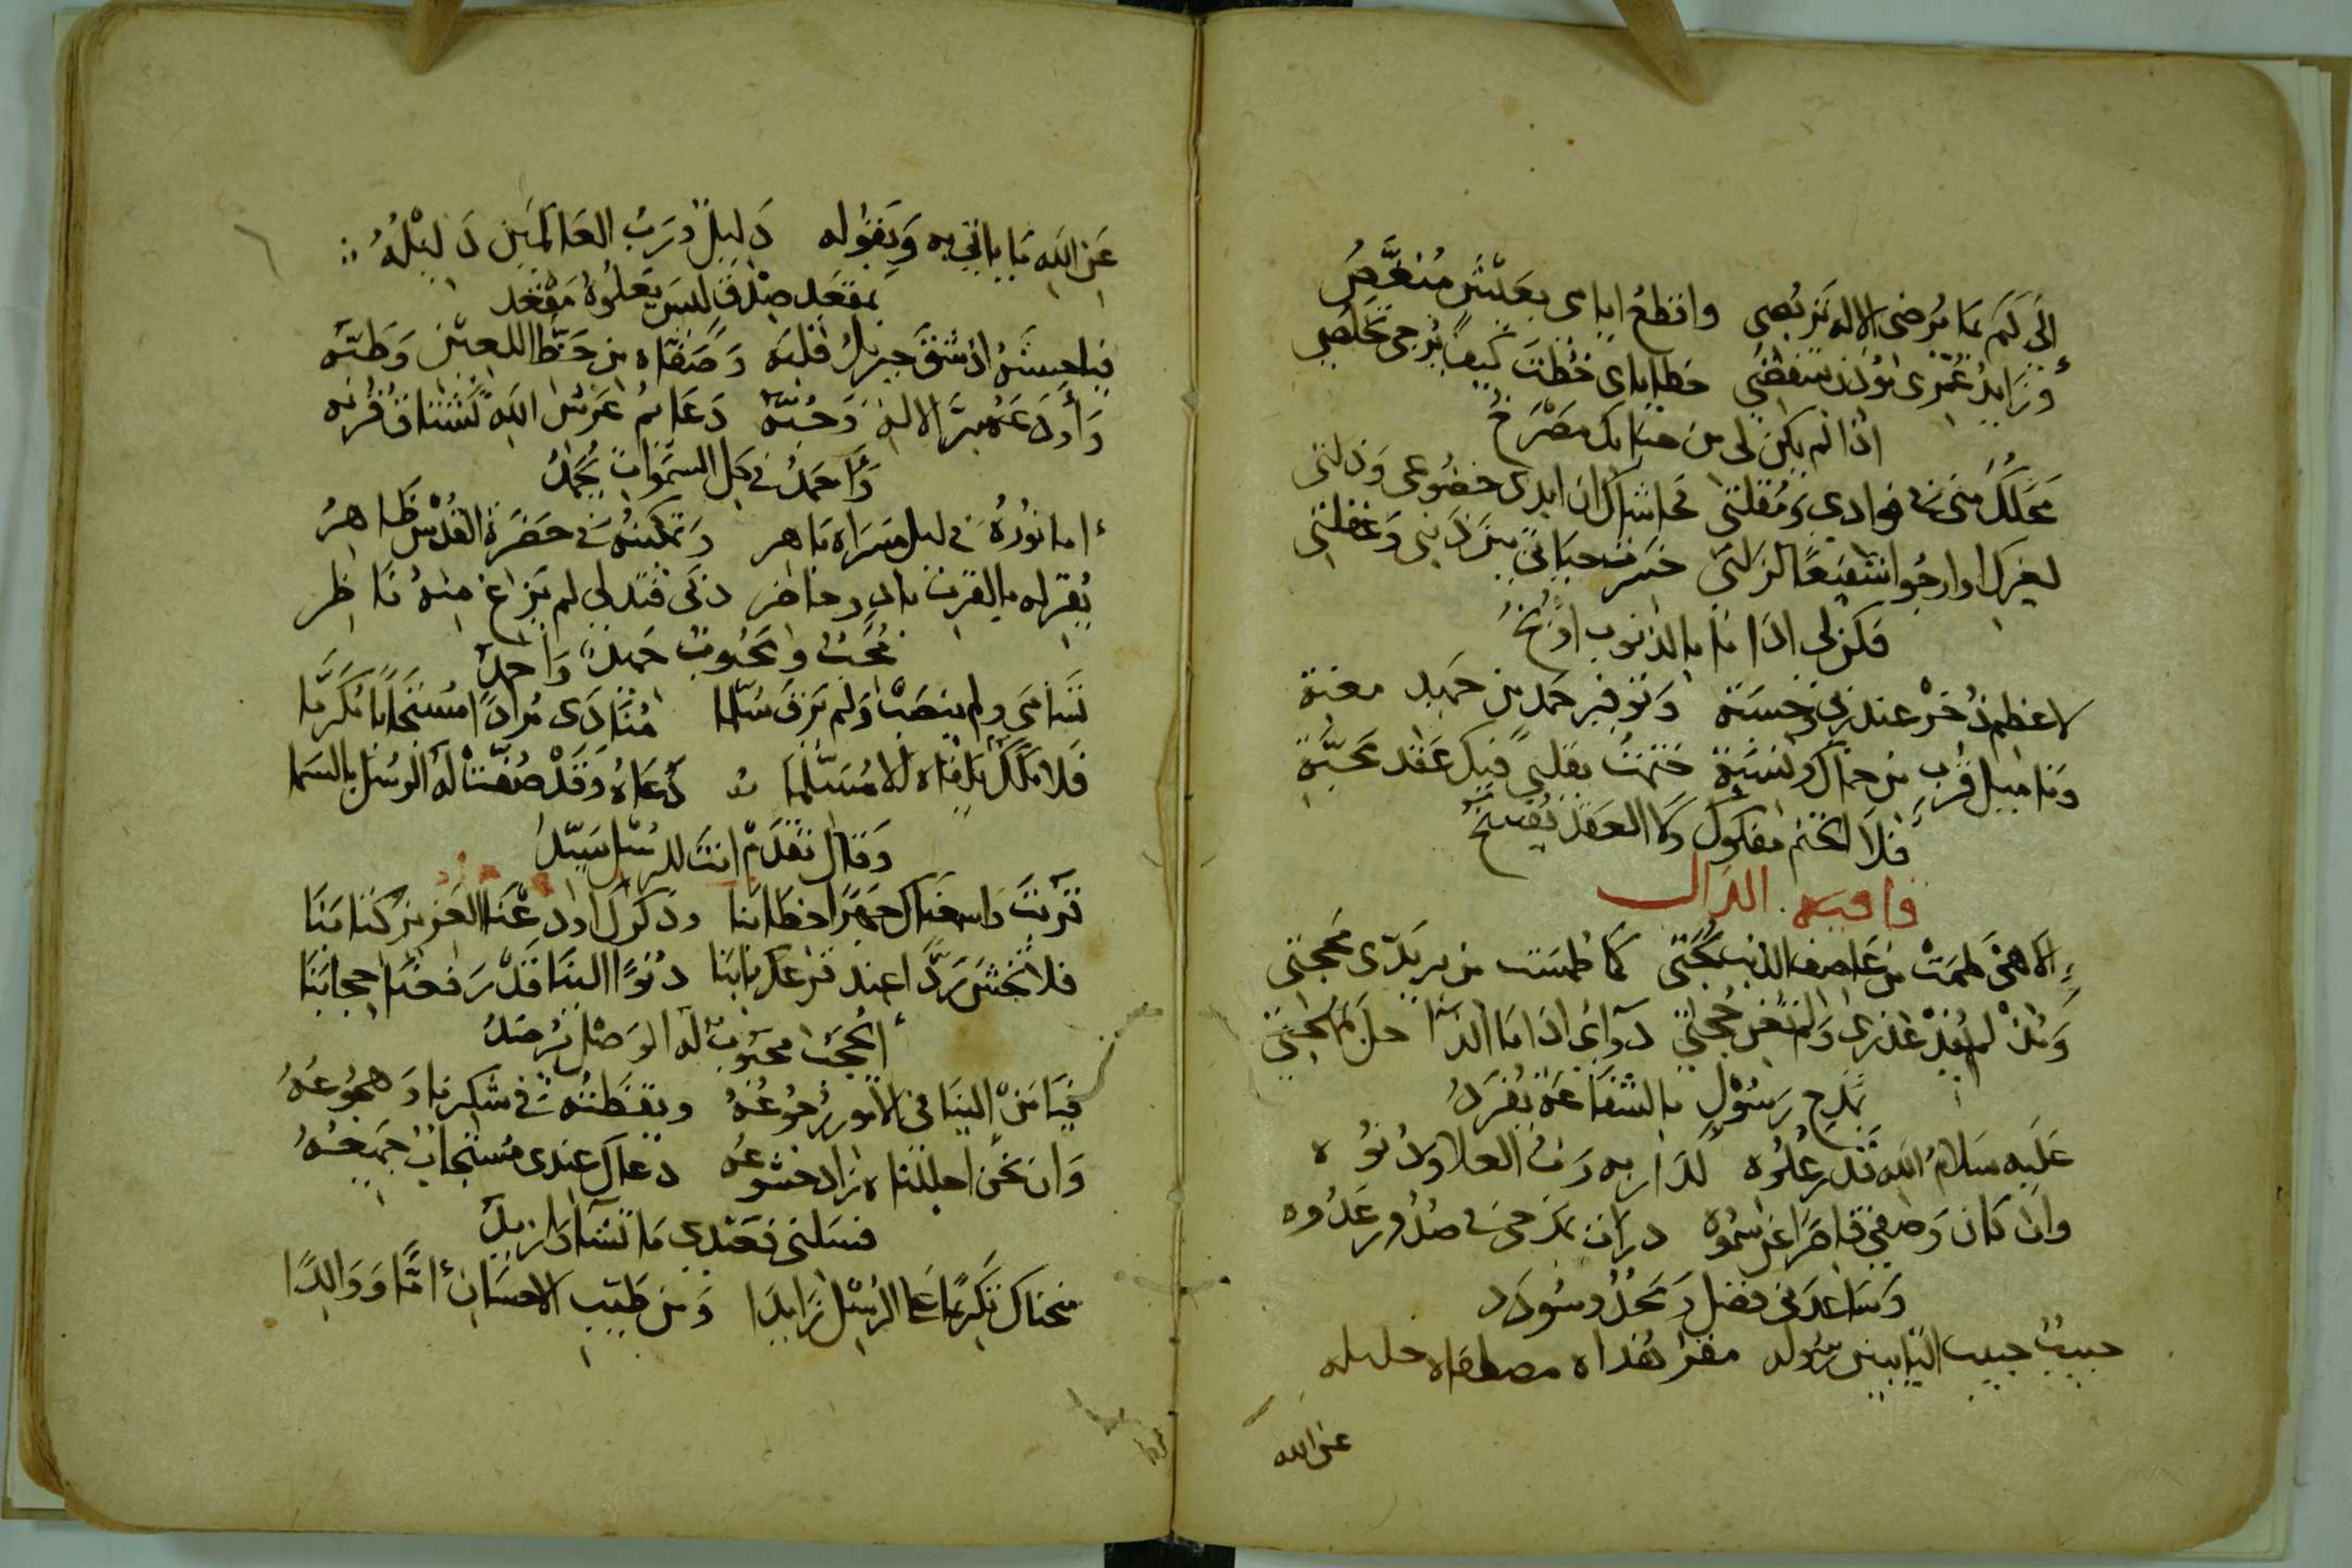 إلى كم بما يرضى الإله تربصي واقطع ايامي بعيش منغص
وزايد عمري مؤذن بتنقصي خطاياي خطت كيف يرجى تخلصي
اذا لم يكن لي من جنابك مصرخ
محلك مني في فوادي ومقلتي فحاشاك ان ابدي خضوعي وذلتي
لغيرك او ارجوا شفيعا لزلتي خسرت حياتي بين ذنبي وغفلتي
فكن لي اذا ما بالذنوب اوبخ
لاعظم ذخر عند ربي وحسبة وتوفير حمد من حميد مغبة
وما ميل قرب من حماك ونسبة ختمت بقلبي فيك عقد محبة
فلا الختم مفكوك ولا العقد يفسخ
قافيه الدال
الاهي طمت من عاصف الذنب لجتي كما طمست من بريدي محجتي
ومذ لم يفد عذري ولم تغن حجتي دوائي اذا ما الدا حل بمهجتي
بمدح رسول بالشفاعة يفرد
عليه سلام الله قدر علوه لدار به رب العلا ودنوه
وان كان وصفي قاصرا عن سموه درات بمدحي في صدور عدوه
وساعدني فضل ومجد وسودد
حبيب حبيب التايبين رسوله مقر هداه مصطفاه خليله
عن الله
عن الله ما ياتي به ويقوله دليل ورب العالمين دليله
بمقعد صدق ليس يعلوه مقعد
فيا حسنه اذ شق جبريل قلبه وصفاه من حظ اللعين وطبه
واودعه سر الاله وحبه دعايم عرش الله تشتاق قربه
واحمد في كل السموات يحمد
اما نوره في ليل مسراه باهر وتمكينه في حضرة القدس ظاهر
يقر له بالقرب باد وحاضر دنى فتدلى لم يزاغ منه ناظر
محب ومحبوب حميد واحمد
تسامى ولم ينصب ولم يرق سلما منادى مرادا مستجابا مكرما
فلا ملك يلقاه الا مسلما دعاه وقد صفت له الرسل بالسما
وقال تقدم انت للرسل سيد
قربت واسمعناك جهرا خطابنا وذكراك اودعنا العزيز كتابنا
فلا تخش ردا عند قرعك بابنا دنوا الينا قد رفعنا حجابنا
ايحجب محبوب له الوصل يرصد
فيا من الينا في الامور رجوعه ويقظته في شكرنا وهجوعه
وان نحن اجللناه زاد خشوعه دعاك عندي مستجاب جميعه
فسلني فعندي ما تشا وازيد
منحناك تكريما على الرسل زايدا ومن طيب الاحسان اما ووالدا